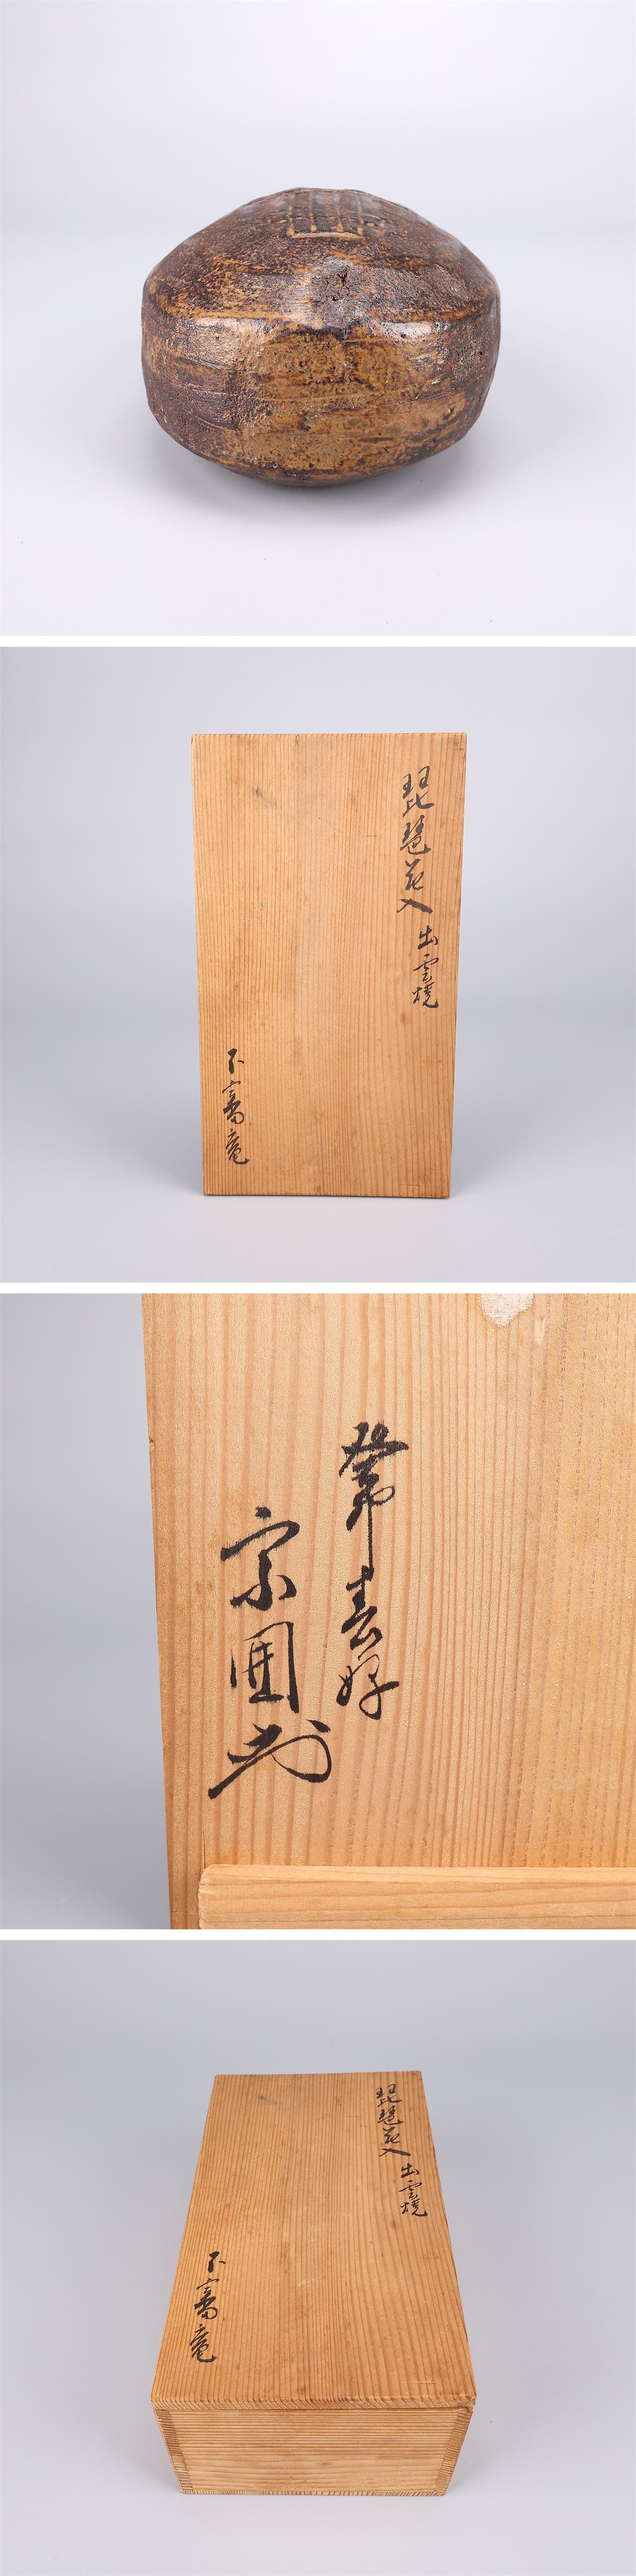 琵琶花入 出雲焼
不審菴
常春好
宗圃
琵琶花入 出雲焼
不審菴